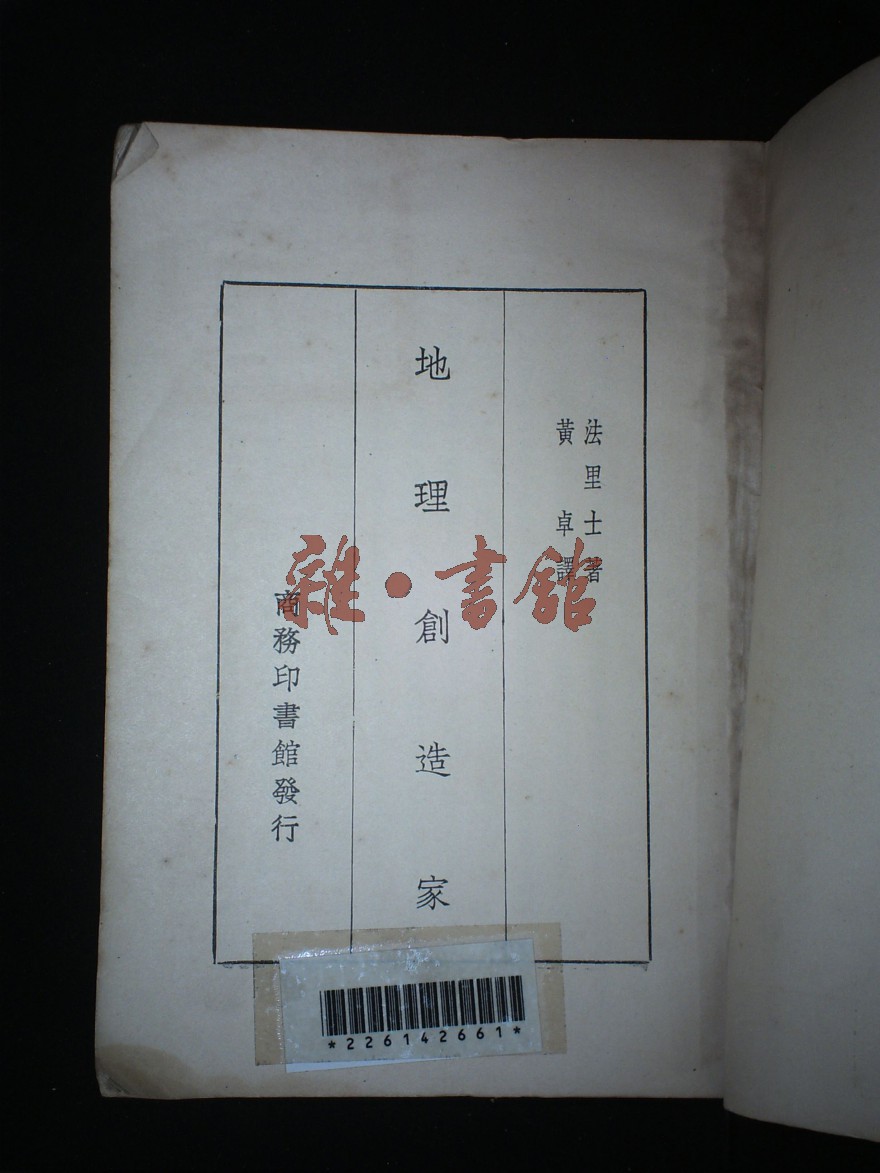 法里士著
黃卓譯
地理創造家
商務印書館發行
雜·書館
*226142661*